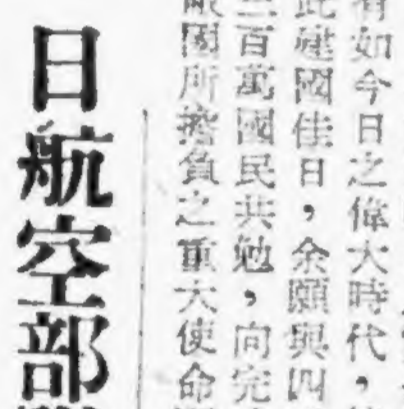 有如今日之偉大時代，
此建國佳日，余願與四
三百萬國民共勉，向完
敝國所擔負之重大使命
日航空部